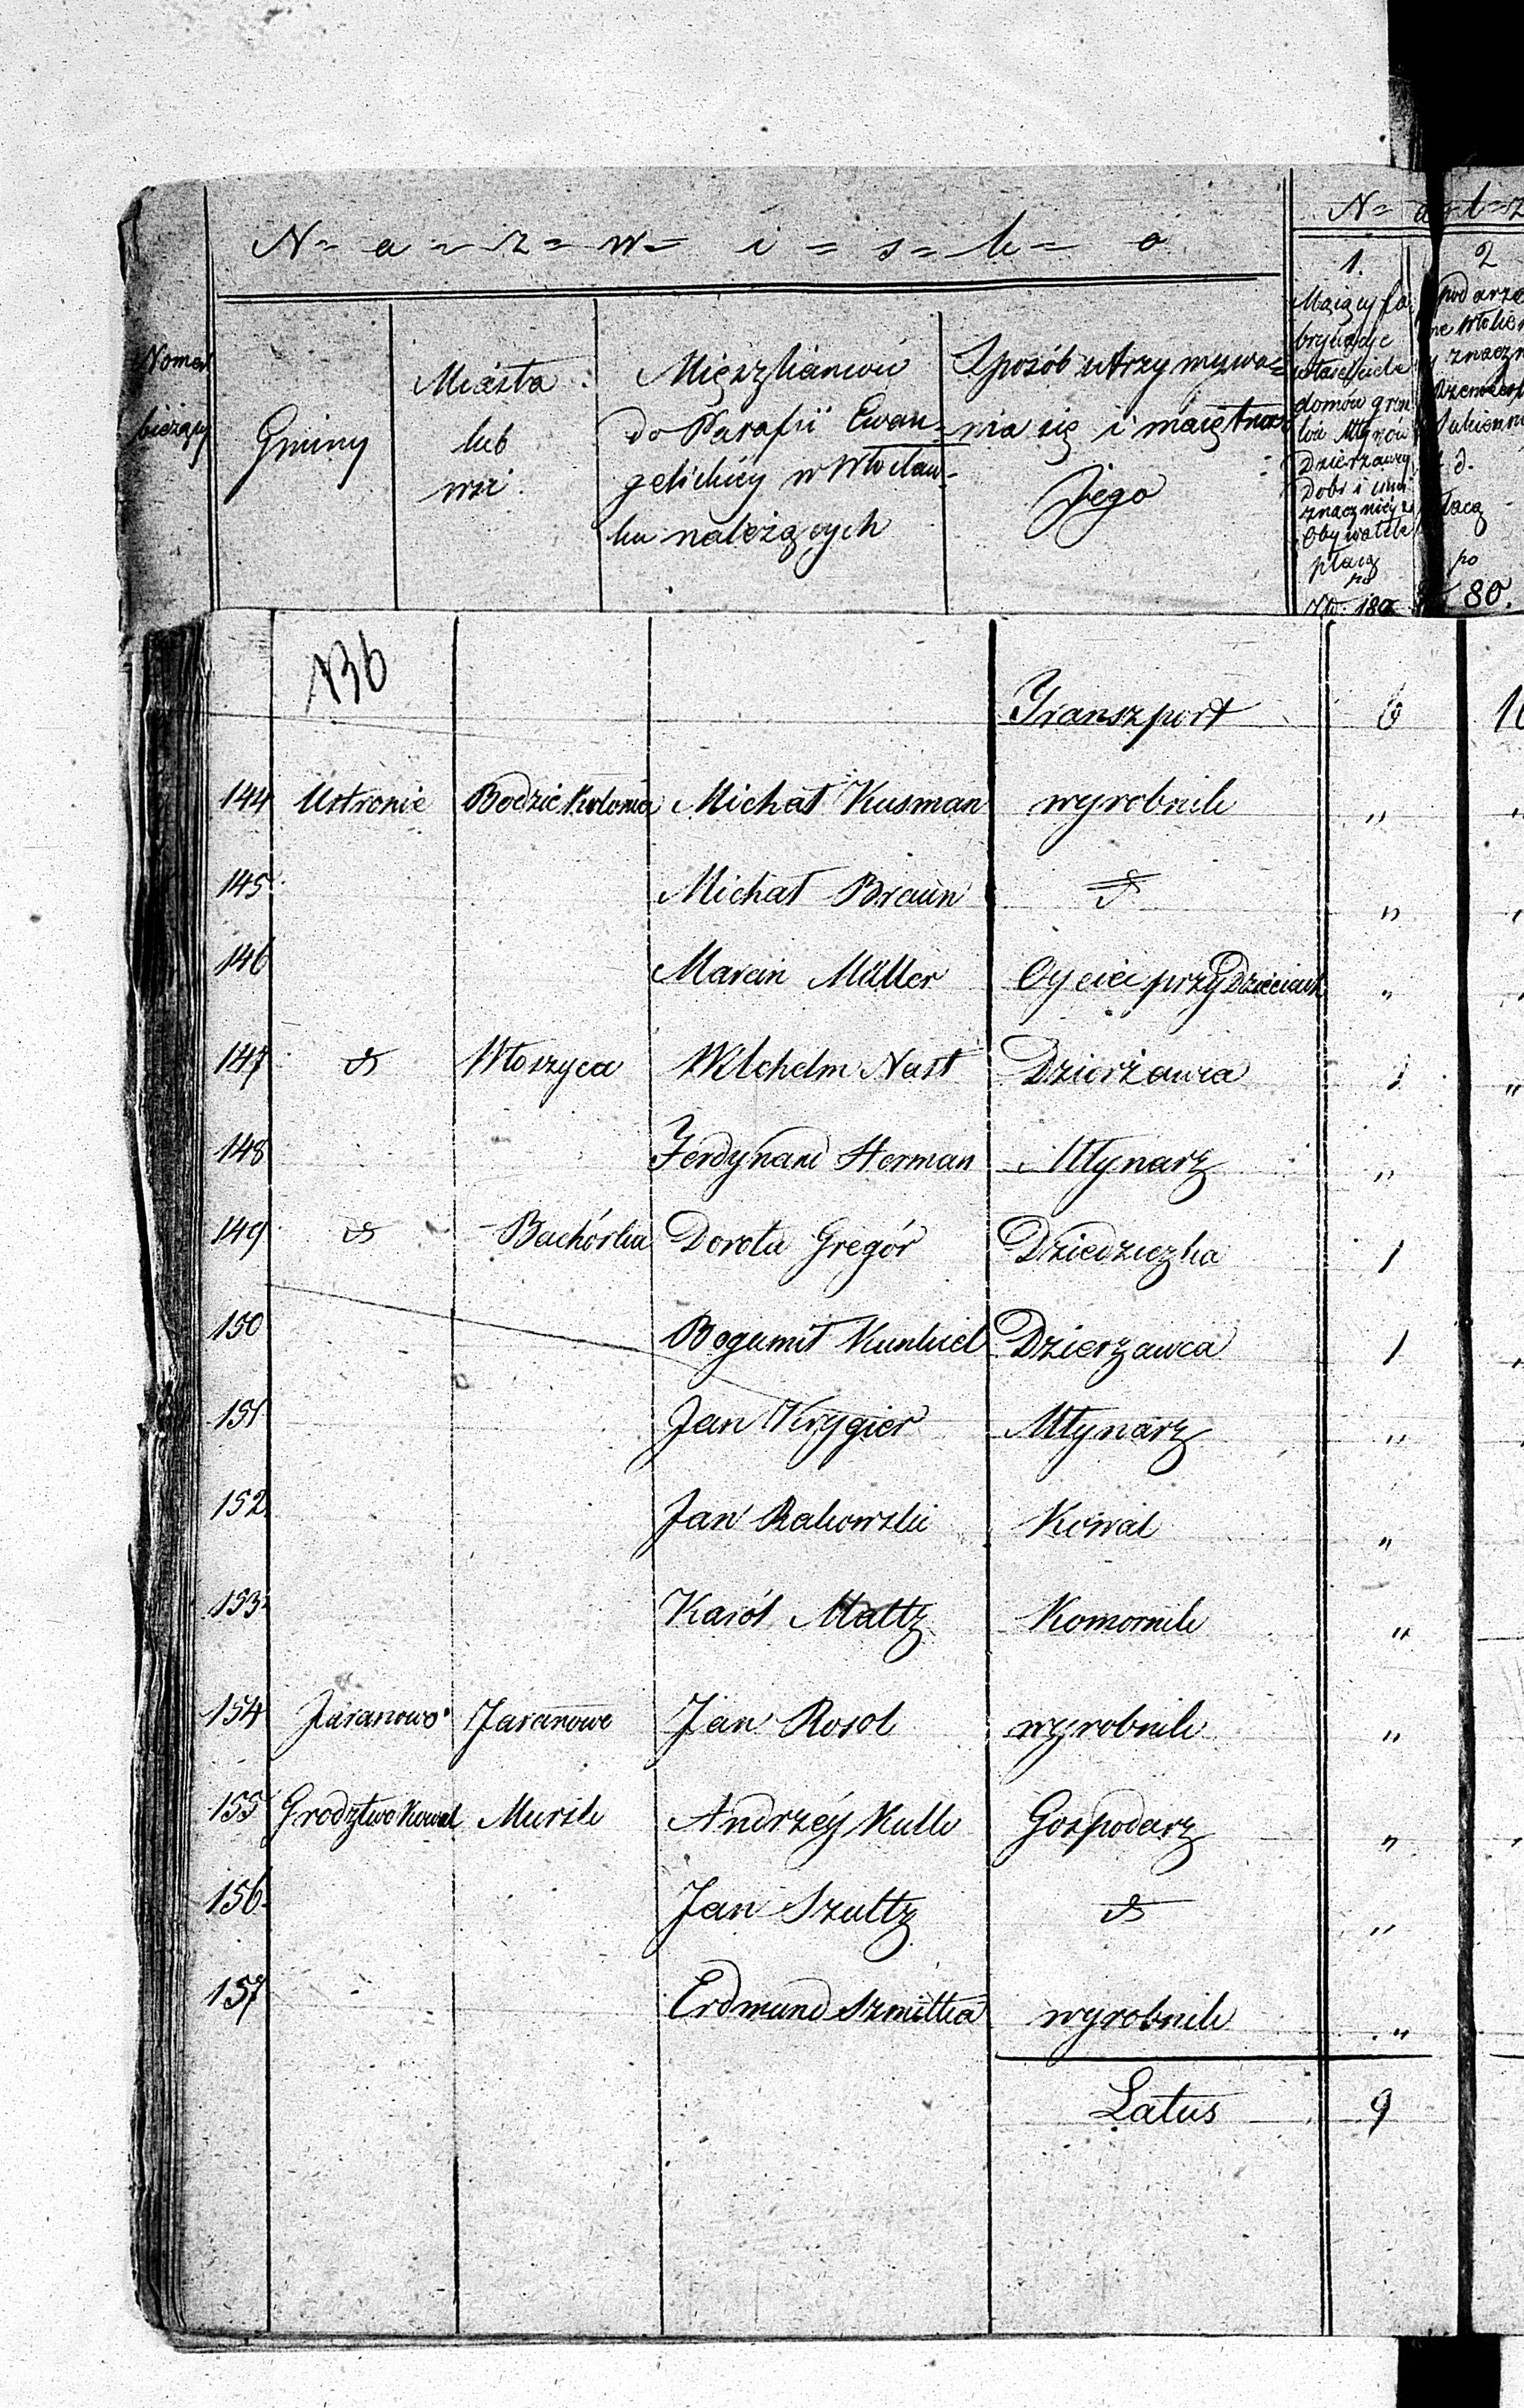 N= a= z= w= i= s= k= o
N=
1. 2
Numer
bieżący
Gminy
Miasta
lub
wsi.
Mięszkańców
do Parafii Ewan=
gelickiéy w Włocław=
ku należących
Sposób utrzymywa=
nia się i maiętność
Jego
Maiący fa
bryki
domów
Dzierzawcy
Dobr i inni
znacznieysi
Obywatele
płacą
po
180
płacą
po
80.
136
Transzport 6
144 Ustronie Bodzic Kolonia Michał Kusman wyrobnik "
145 Michał Braun d "
146 Marcin Müller Oyciec przy Dzieciach "
147 d Włoszyca Wilchelm Nast Dzierżawca 1 "
148 Ferdynand Herman Młynarz "
149 d Bachórka Dorota Gregór Dziedziczka 1
150 Bogumił Kunkiel Dzierzawca 1
151 Jan Krygier Młynarz "
152 Jan Rakowski Kowal "
153 Karól Maltz Komornik "
154 Jaranowo Jaranowo Jan Rosol wyrobnik "
155 Grodztwo Kowal Mursk Andrzéy Kulk Gospodarz "
156 Jan Szultz d "
157 Erdmund Szmitka wyrobnik "
Latus 9